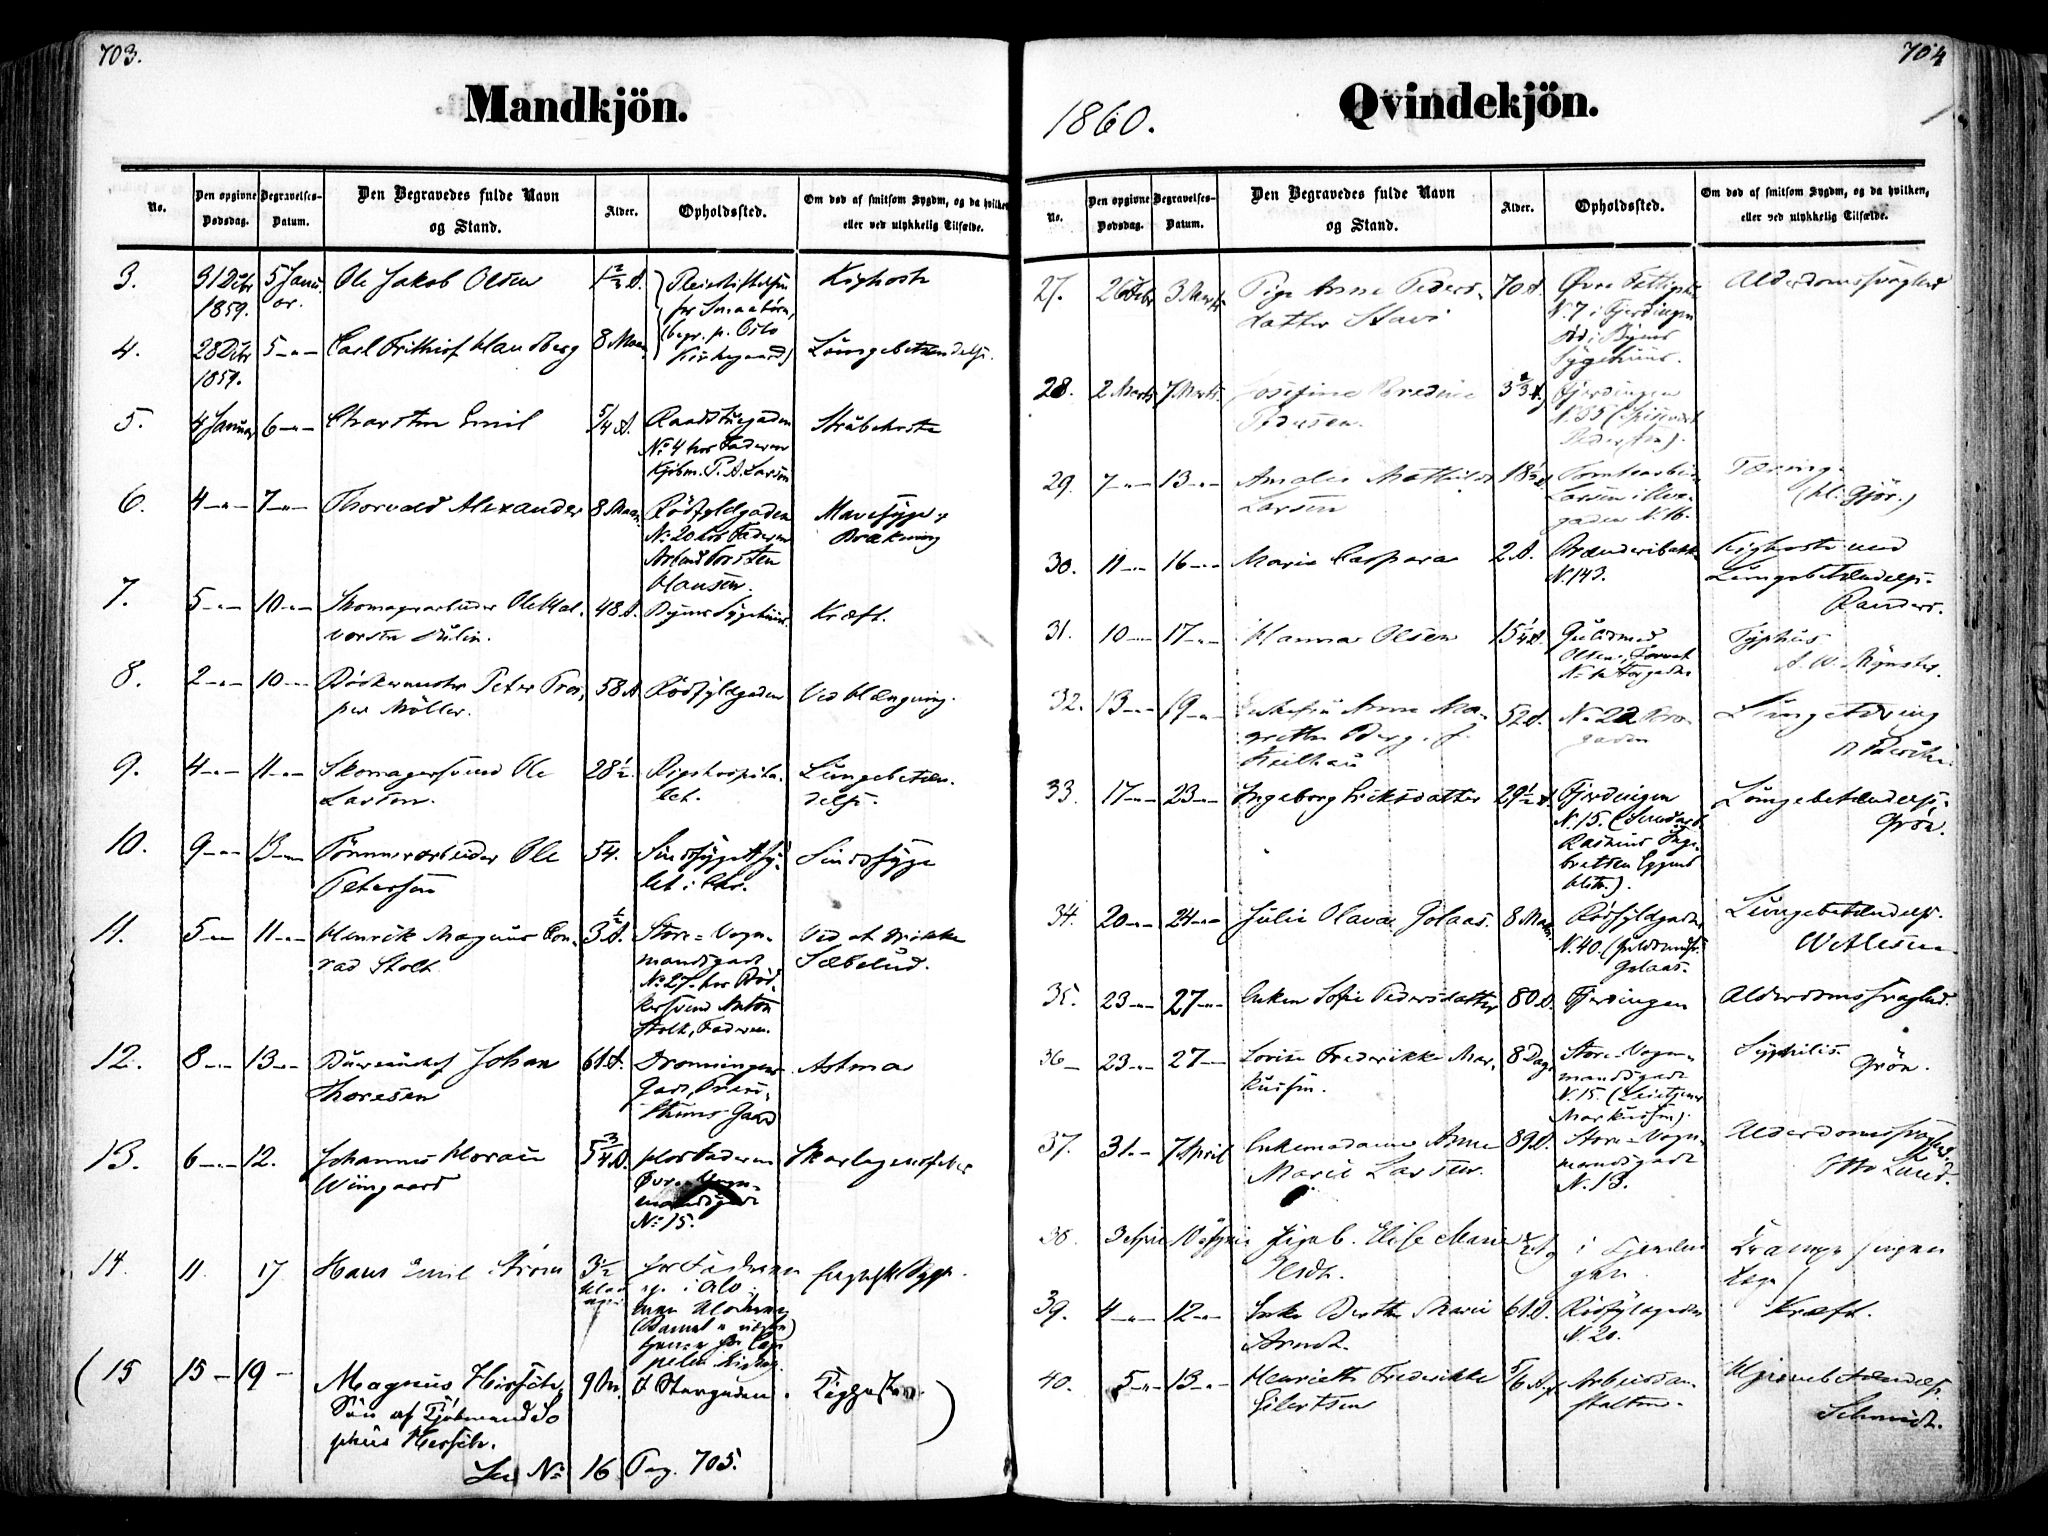 703.
Mandkjön.
No.
Den opgivne Dødsdag.
Begravelses-Datum.
Den Begravedes fulde Navn og Stand.
Alder.
Opholdssted.
Om død af smitsom Sygdm, og da hvilken, eller ved ulykkelig Tilfælde.
3. 31 Decbr 1859. 5 Janu- ar. Ole Jakob Olsen 1 2/3 A. Kighoste
for Smaabörn, (begr. p. Oslo Kirkegaard)
4. 28 Decbr 1859. 5 -"- Carl Frithiof Handberg 8 Maan. Lungebetændelse.
5. 4 Januar 6 -"- Charsten Emil 5/4 A. Raadstuegaden No. 4 hos Faderen Kjöbm. P. A. Larsen Strubehoste
6. 4 -"- 7 -"- Thorvald Alexander 8 Maan. Rödfyldgaden No. 20 hos Faderen Arbmd Torsten Hansen. Mavesyge & Brækning
7. 5 -"- 10 -"- Skomagerarbeider Ole Hal- vorsen Mulin. 48 A. Byens Sygehuus. Kræft.
8. 2 -"- 10 -"- Bödkermester Peter Pros- per Möller. 58 A. Rödfyldgaden Ved Hængning.
9. 4 -"- 11 -"- Skomagersvend Ole Larsen. 28 1/2. Rigshospita- let. Lungebetæn- delse.
10. 9 -"- 13 -"- Tömmerarbeider Ole Petersen 54. Sindssygeasy- let i Chr. Sindssyge
11. 5 -"- 11 -"- Henrik Magnus Con- rad Stolt 3 1/2 A. Store-Vogn- mandsgade No. 27. hos Böd- kersvend Anton Stolt, Faderen. Ved at drikke Sæbelud.
12. 8 -"- 13 -"- Bureauchef Johan Thoresen 61 A. Dronningens Gade, Gaard Astma
13. 6 -"- 12. Johannes Horau Wiingaard 5 3/4 A. Hos Faderen Övre-Vogn- mandsgade No. 15. Skarlagensfeber
14. 11. 17 Hans Emil Ström 3 1/2 Engelsk Syge.
(15 15 - 19 - Magnus Hirsch, Sön af Kjöbmand So phus Hirsch. 9 M. i Storgaden. )
See No. 16 Pag. 705.
704
1860.
Qvindekjön.
No.
Den opgivne Dødsdag.
Begravelses-Datum.
Den Begravedes fulde Navn og Stand.
Alder.
Opholdssted.
Om død af smitsom Sygdm, og da hvilken, eller ved ulykkelig Tilfælde.
27. 26 Febr 3 Marts Pige Anne Peders- datter Stavi 70 A. Övre No. 7 i Fjerdingen död i Byens Sygehuus. Alderdomssvaghed
28. 2 Marts 7 Marts Josefine Bredine Pedersen. 3 2/3 A. Fjerdingen No. 35
29. 7 -"- 13 -"- Amalie Mathilde Larsen 18 1/2 A. Tomtearbei- Larsen i Elve- gaden No. 16. Tæring (kl. Gjör.)
30. 11 -"- 16 -"- Marie Caspara 2 A. Brænderibakke No. 143. Kighoste med Lungebetændelse. Randers.
31. 10 -"- 17 -"- Hanna Olsen 15 1/4 A. Guldsmed Olsen, Storgaden Typhus A. W. Mynster.
32. 13 -"- 19 -"- Anne Ma- grethe Berg f. Keilhau 52 A. No. 22 Kro- gaden Lungetæring
33. 17 -"- 23 -"- Ingeborg Eriksdatter 29 1/2 A. Fjerdingen No. 15. Rasmus Inge- bretsen Lungebetændelse. Grön.
34. 20 -"- 24 -"- Julie Olava Golaas. 8 Maan. Rödfyldgaden No. 40. Golaas. Lungebetændelse. Wetlesen.
35. 23 -"- 27 -"- Enken Sofie Pedersdatter 80 A. Fjerdingen Alderdomssvaghed.
36 - 23 -"- 27 - Lovise Frederikke Mar- kussen. 8 Dage Store-Vogn- mandsgade No. 15. Markussen). Syphilis. Grön.
37. 31 - 7 April Enkemadame Anne Marie Larsen. 89 A. Store-Vogn- mandsgade No. 13. Alderdomssvaghed. Otto Lund.
38. 3 April 10 April Pige b. Elise Marie i Fjerdin- gen Krampe (ingen Læge)
39. 4 -"- 12 -"- Enke Berthe Marie Arndt. 61 A. Rödfyldgaden No. 20. Kræft.
40. 5 -"- 13 -"- Henriette Frederikke Eilertsen 5/6 A. Arbeidsan- stalten. Hjernebetændelse. Schmidt.